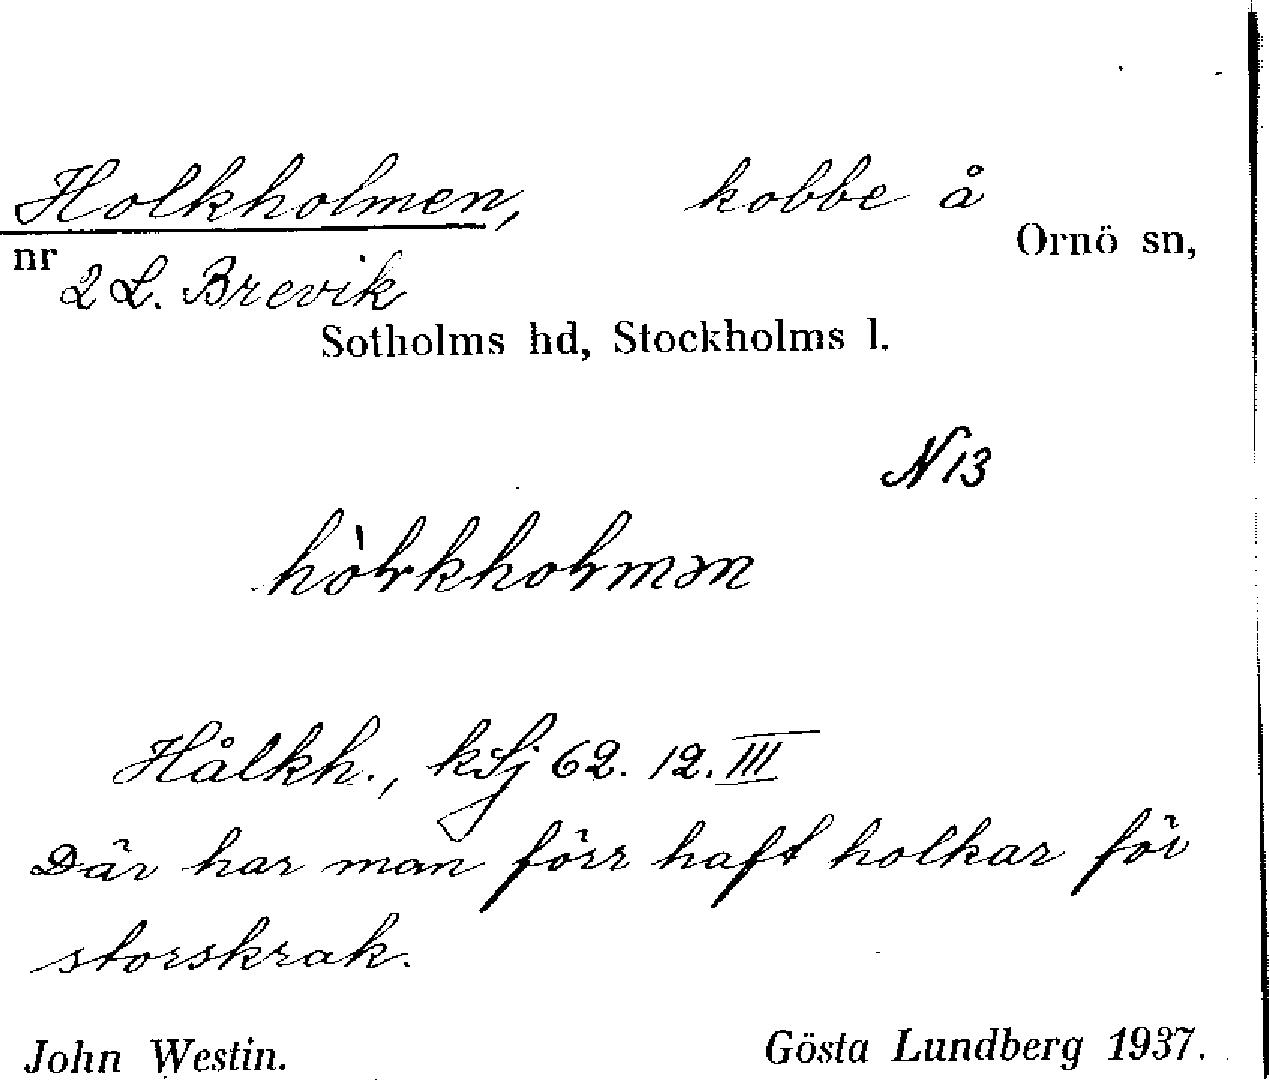 Holkholmen, kobbe å
Ornö sn,
nr 2 L. Brevik
Sotholms hd, Stockholms l.
N 13
hòɫkhoɫmən
Hålkh., kSj 62. 12. III
Där har man förr haft holkar för
storskrak.
John Westin. Gösta Lundberg 1937.